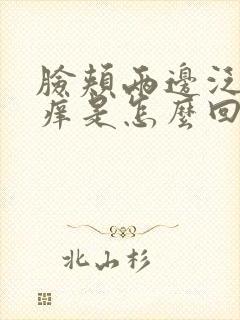 臉頰兩邊泛
痒是怎麼回
北山杉